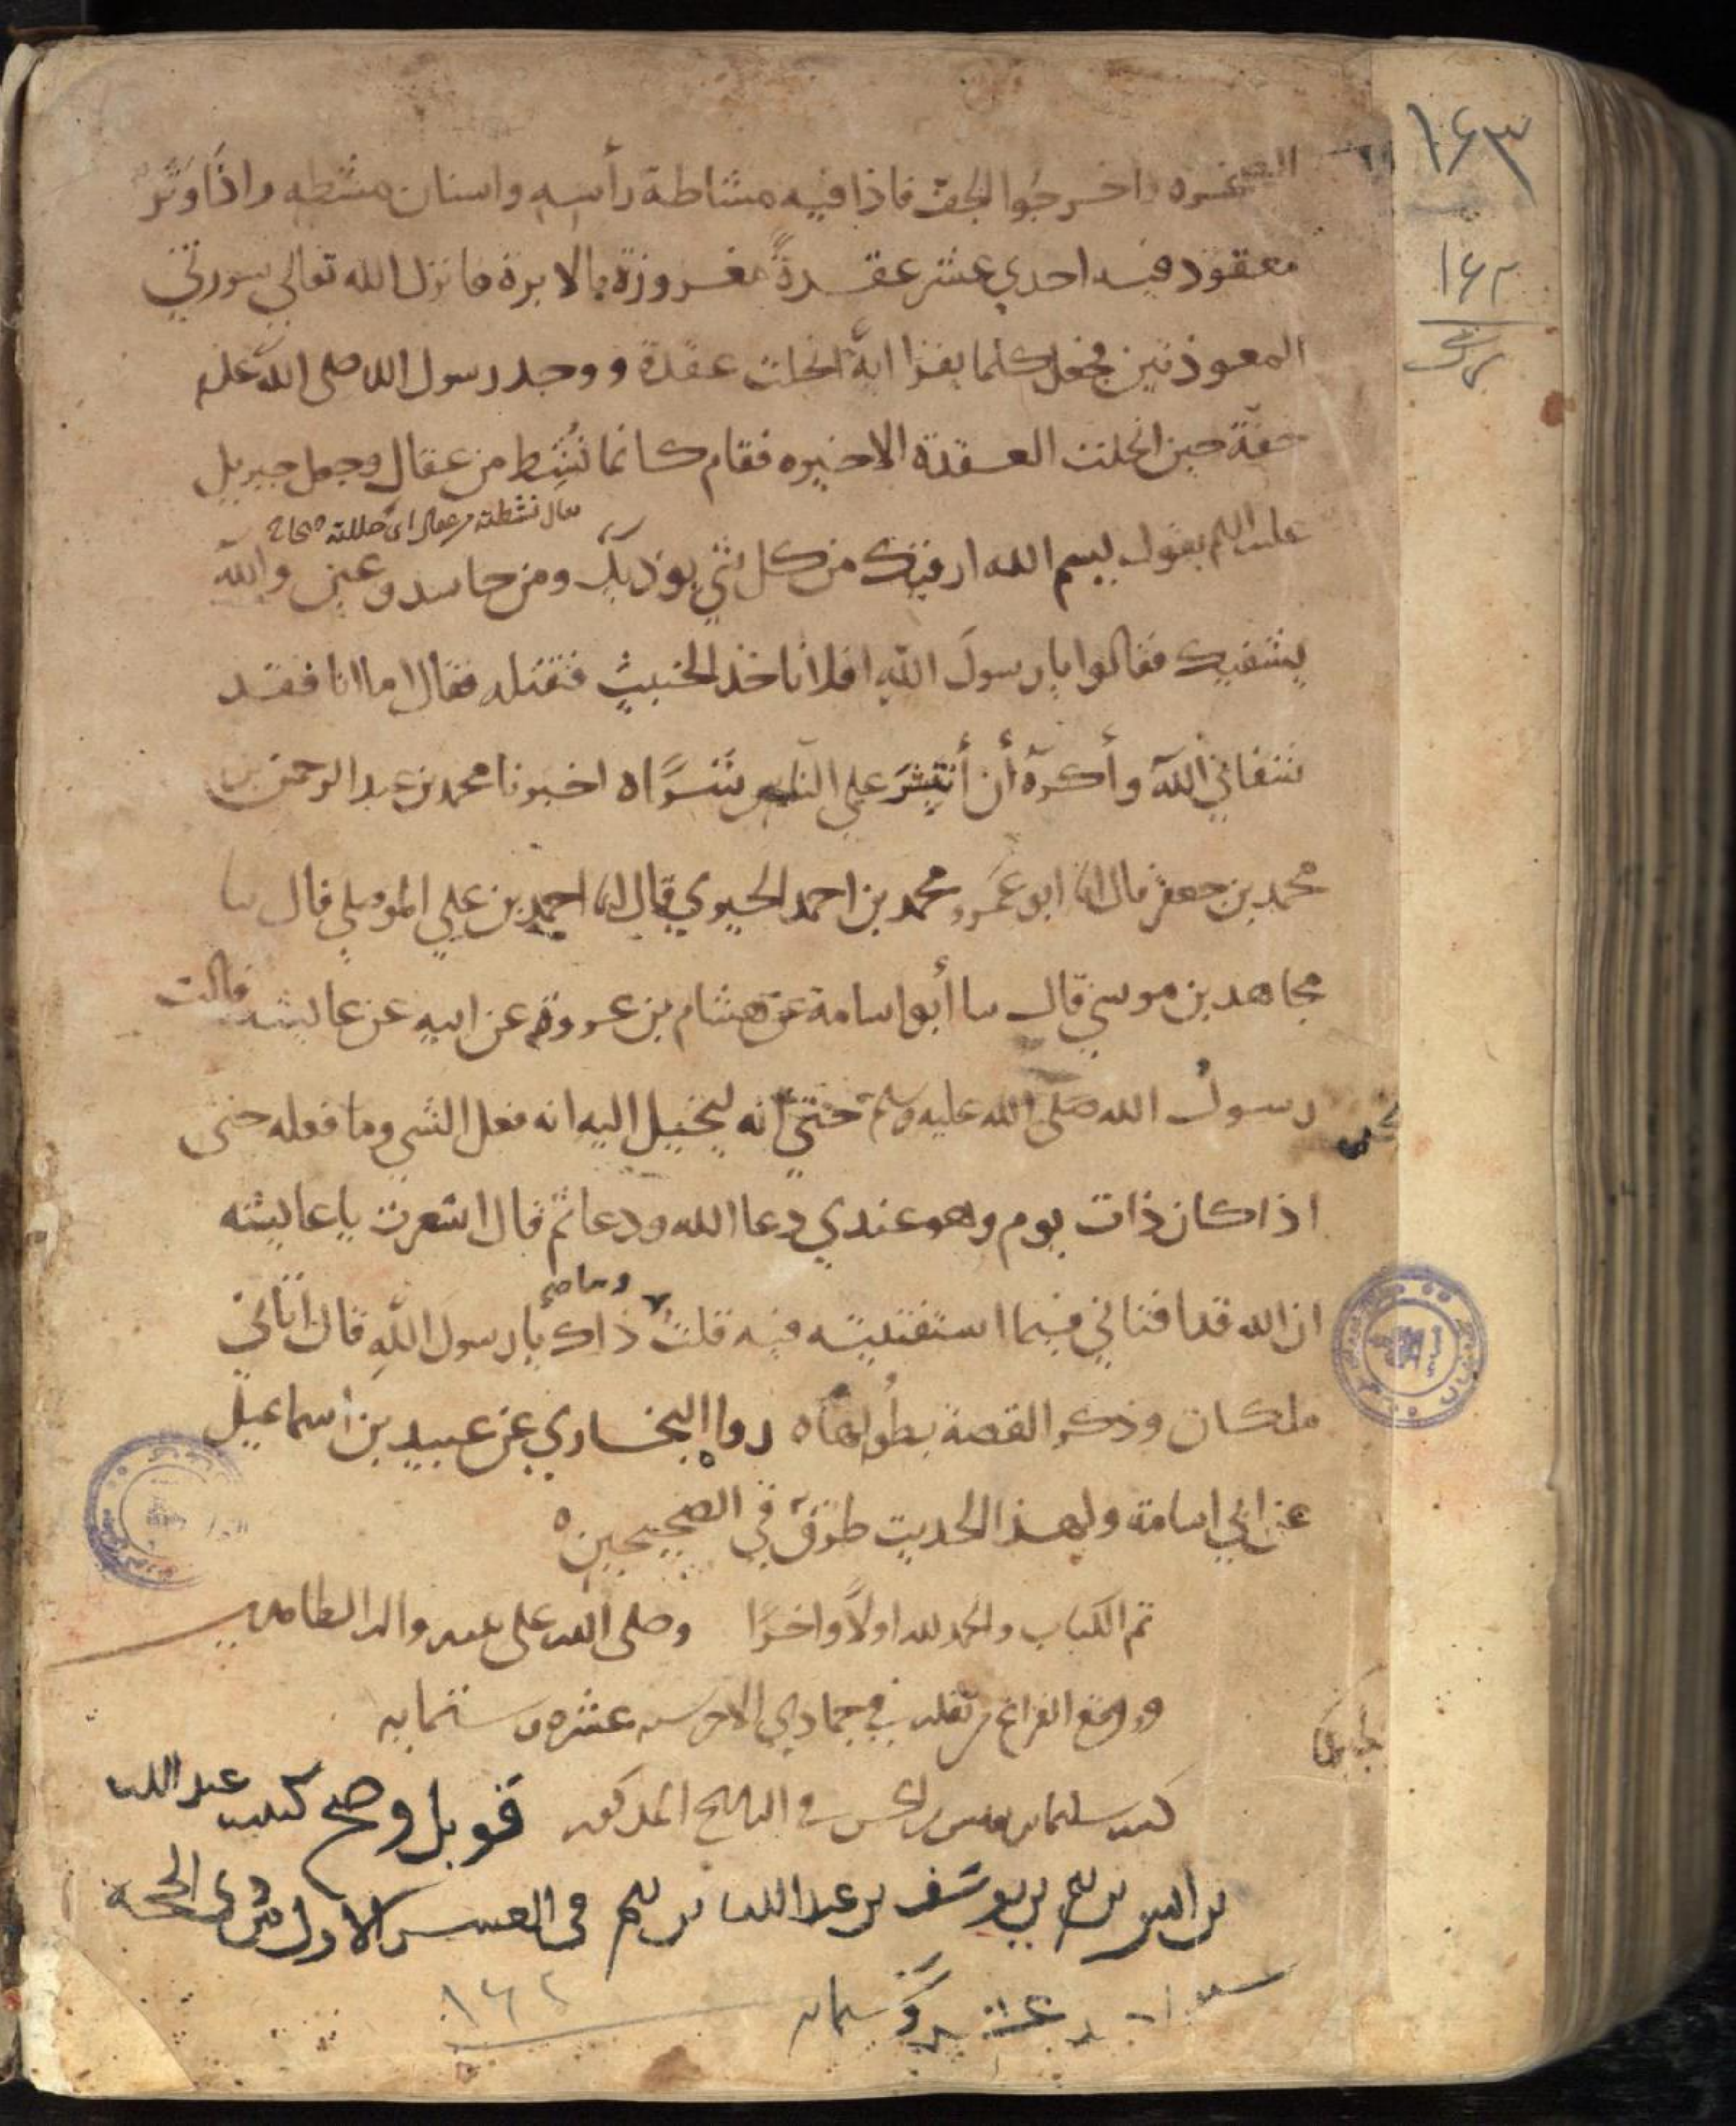 ١٦٣
١٦٢
الصخره واخرجوا الجف فاذا فيه مشاطة رأسه واسنان مشطه واذا وَتَر
معقود فيه احدي عشر عقدةً مغروزة بالابرة فانزل الله تعالي سورتي
المعوذتين فجعل كلما يقرا ايةً انحلت عقدة ووجد رسول الله صلى الله عليه
خفّة حين انحلت العقدة الاخيره فقام كانما نُشِط من عقال وجعل جبريل
يقال نشطته من عقال اى حللته صحاح
عليه السلم يقول بسم الله ارقيك من كل شي يوذيك ومن حاسد وعين والله
يشفيك فقالوا يا رسولَ اللهِ افلا ناخذ الخبيث فنقتله فقال اما انا فقد
شفاني اللهُ وأكره أن أنتشرَ علي الناس شرًّا ه اخبرنا محمد بن عبد الرحمن بن
محمد بن جعفر قال انا ابو عَمرو محمد بن احمد الحيري قال انا احمد بن علي الموصلي قال نا
مجاهد بن موسي قال نا أبو اسامة عن هشام بن عروة عن ابيه عن عايشه قالت
سُحر
رسولُ الله صلى الله عليه وسلم حتي انه ليخيل اليه انه فعل الشي وما فعله حتى
اذا كان ذات يوم وهو عندي دعا الله ودعا ثم قال اشعرت يا عايشه
وما صح
ان الله قد افتاني فيما استفتيته فيه قلت ذاك يا رسول اللهِ قال أتاني
ملكان وذكر القصة بطُولها ه رواه البخاري عن عبيد بن اسماعيل
عن ابي اسامة ولهذا الحديث طرقٌ في الصحيحين ه
تم الكتاب والحمد لله اولًا واخرًا وصلى الله على محمد واله الطاهرين
ووقع الفراغ من نقله في جمادي الاخر سنه عشره وستمايه
كتبه سليمان بن الحسن في التاريخ المذكور قوبل وصح كتبه عبد الله
بن يوسف بن عبد الله بن في العشر الاول من ذى الحجه
سنه عشره وستمايه
١٦٢